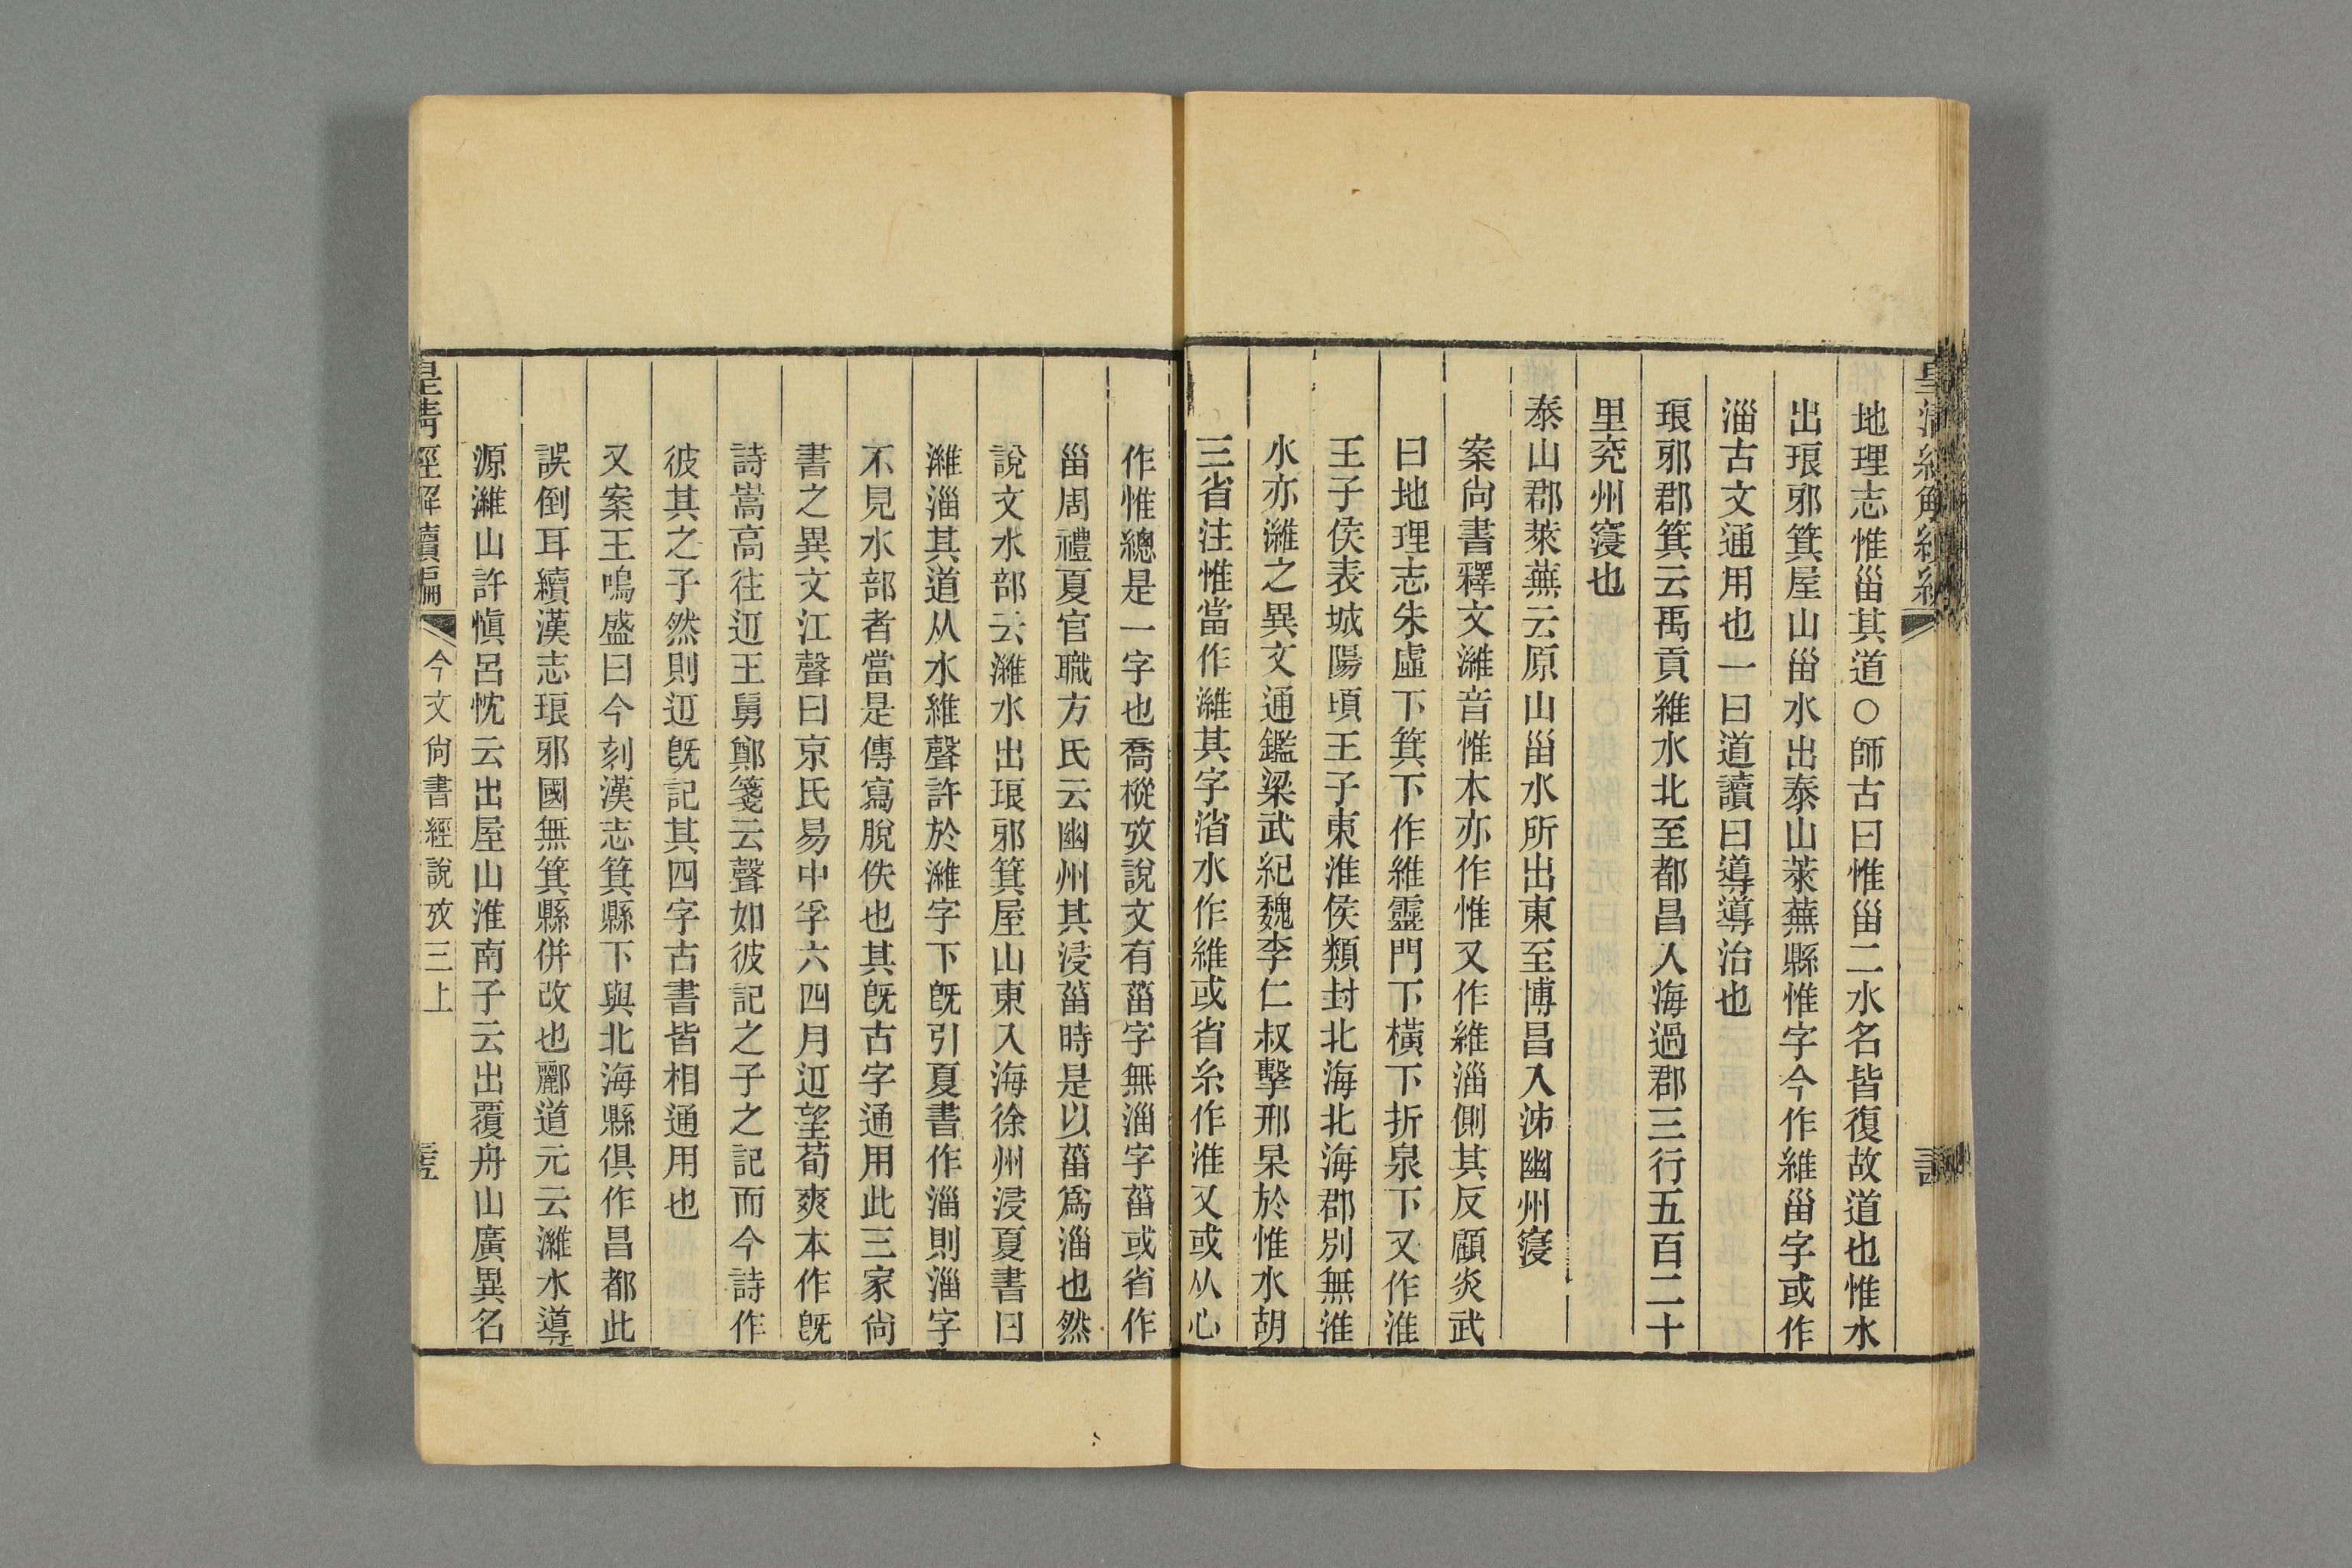 地理志惟甾其道○師古曰惟甾二水名皆復故道也惟水
出琅邪箕屋山甾水出泰山萊蕪縣惟字今作維甾字或作
淄古文通用也一曰道讀曰導導治也
琅邪郡箕云禹貢維水北至都昌入海過郡三行五百二十
里兖州寖也
泰山郡萊蕪云原山甾水所出東至博昌入泲幽州寖
案尙書釋文濰音惟本亦作惟又作維淄側其反顧炎武
曰地理志朱虛下箕下作維靈門下橫下折泉下又作淮
王子侯表城陽頃王子東淮侯類封北海北海郡別無淮
水亦濰之異文通鑑梁武紀魏李仁叔擊邢杲於惟水胡
三省注惟當作濰其字省水作維或省糸作淮又或从心
作惟總是一字也喬樅攷說文有菑字無淄字菑或省作
甾周禮夏官職方氏云幽州其浸菑時是以菑爲淄也然
說文水部云濰水出琅邪箕屋山東入海徐州浸夏書曰
濰淄其道从水維聲許於濰字下旣引夏書作淄則淄字
不見水部者當是傳寫脫佚也其旣古字通用此三家尙
書之異文江聲曰京氏易中孚六四月近望荀爽本作旣
詩嵩高往䢋王舅鄭箋云聲如彼記之子之記而今詩作
彼其之子然則䢋旣記其四字古書皆相通用也
又案王鳴盛曰今刻漢志箕縣下與北海縣俱作昌都此
誤倒耳續漢志琅邪國無箕縣併改也酈道元云濰水導
源濰山許愼呂忱云出屋山淮南子云出覆舟山廣異名
皇淸經解續編
今文尙書經說攷三上